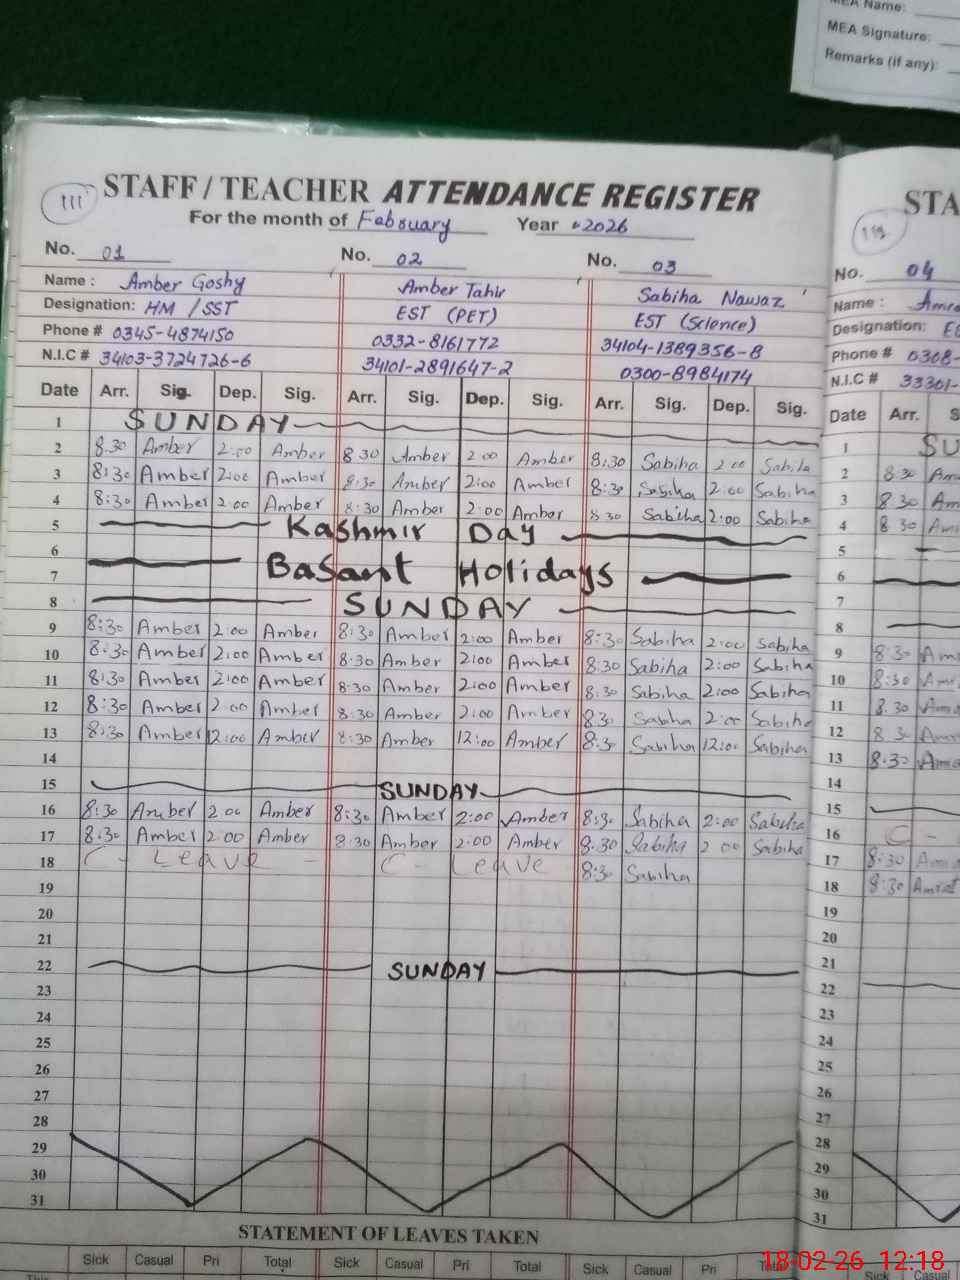 MEA Name:
MEA Signature:
Remarks (if any):
111
STAFF / TEACHER ATTENDANCE REGISTER
For the month of February Year 2026
No. 01 No. 02 No. 03
Name : Amber Goshy Amber Tahir Sabiha Nawaz
Designation: HM / SST EST (PET) EST (Science)
Phone # 0345-4874150 0332-8161772 34104-1389356-8
N.I.C # 34103-3724726-6 34101-2891647-2 0300-8984174
Date Arr. Sig. Dep. Sig. Arr. Sig. Dep. Sig. Arr. Sig. Dep. Sig.
1 SUNDAY
2 8.30 Amber 2:00 Amber 8 30 Amber 2 00 Amber 8:30 Sabiha 2 00 Sabiha
3 8:30 Amber 2:00 Amber 8:30 Amber 2:00 Amber 8:30 Sabiha 2:00 Sabiha
4 8:30 Amber 2:00 Amber 8:30 Amber 2:00 Amber 8 30 Sabiha 2:00 Sabiha
5 Kashmir Day
6
7 Basant Holidays
8 SUNDAY
9 8:30 Amber 2:00 Amber 8:30 Amber 2:00 Amber 8:30 Sabiha 2:00 Sabiha
10 8:30 Amber 2:00 Amber 8.30 Amber 2:00 Amber 8:30 Sabiha 2:00 Sabiha
11 8:30 Amber 2:00 Amber 8:30 Amber 2:00 Amber 8:30 Sabiha 2:00 Sabiha
12 8:30 Amber 2:00 Amber 8:30 Amber 2:00 Amber 8:30 Sabiha 2:00 Sabiha
13 8:30 Amber 12:00 Amber 8:30 Amber 12:00 Amber 8:30 Sabiha 12:00 Sabiha
14
15 SUNDAY
16 8:30 Amber 2 00 Amber 8:30 Amber 2:00 Amber 8:30 Sabiha 2:00 Sabiha
17 8:30 Amber 2:00 Amber 8:30 Amber 2:00 Amber 8:30 Sabiha 2 00 Sabiha
18 C - Leave - C - Leave 8:30 Sabiha
19
20
21
22 SUNDAY
23
24
25
26
27
28
29
30
31
STATEMENT OF LEAVES TAKEN
Sick Casual Pri Total Sick Casual Pri Total Sick Casual Pri Total
This
STA
No. 04
Name :
Designation:
Phone # 0308-
N.I.C # 33301-
Date Arr. S
1 SU
2 8 30
3 8 30
4 8 30
5
6
7
8
9 8:30
10 8:30
11 8.30
12 8 30
13 8:30
14
15
16 C -
17 8:30
18 8:30
19
20
21
22
23
24
25
26
27
28
29
30
31
Sick Casual
18-02-26 12:18